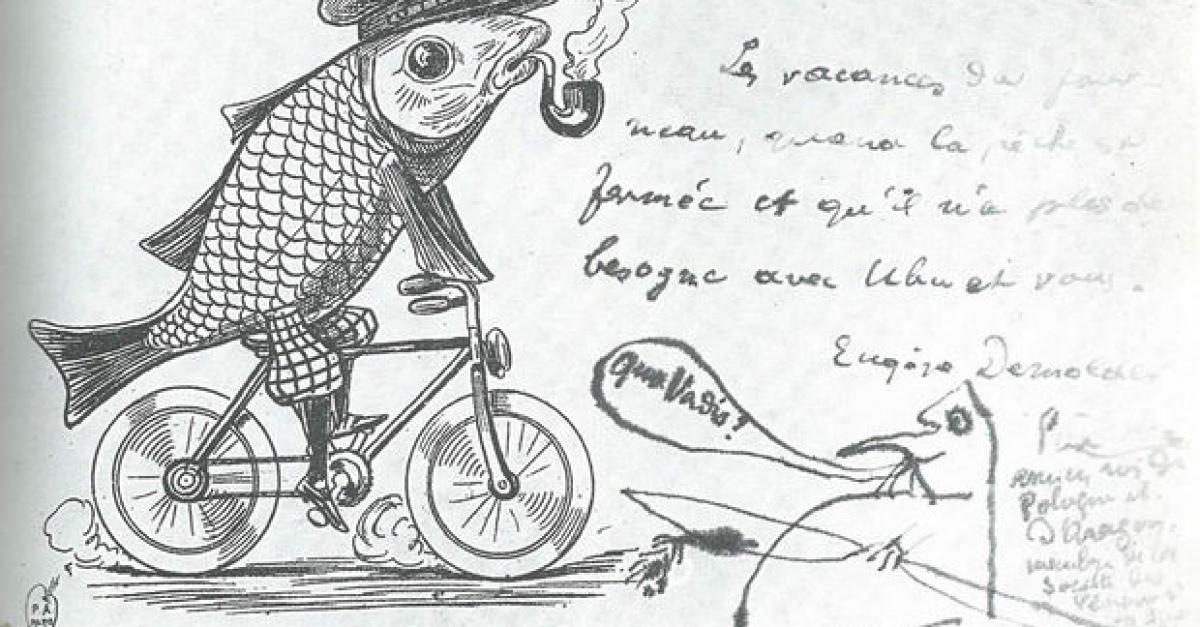 Les vacances du
neau, quand la pêche est
fermée et qu'il n'a plus de
besogne avec Ubu et vous.
Eugène Demolder
Quo Vadis?
ancien roi de
Pologne et
D'Aragon,
membre de la
Société des
P A